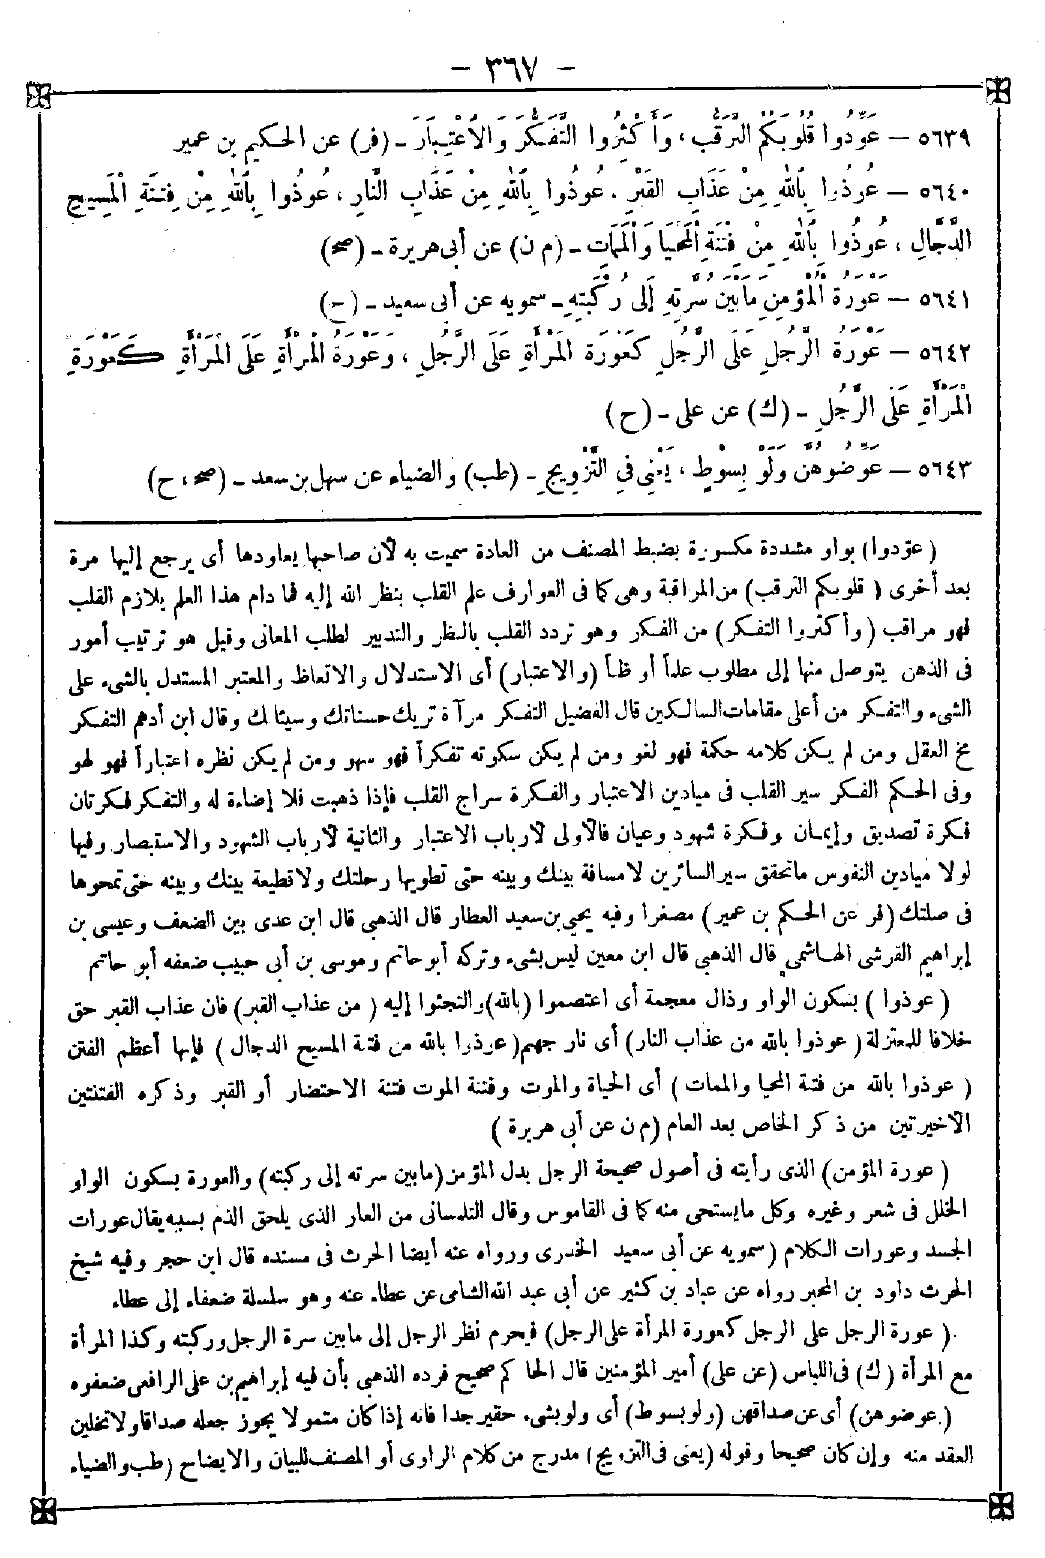 - ٣٦٧ -
٥٦٣٩ - عَوِّدُوا قُلُوبَكُمُ التَّرَقُّبَ، وَأَكْثِرُوا التَّفَكُّرَ وَالاعْتِبَارَ - (فر) عن الحكيم بن عمير
٥٦٤٠ - عُوذُوا بِاللهِ مِنْ عَذَابِ القَبْرِ، عُوذُوا بِاللهِ مِنْ عَذَابِ النَّارِ، عُوذُوا بِاللهِ مِنْ فِتْنَةِ الْمَسِيحِ
الدَّجَّالِ، عُوذُوا بِاللهِ مِنْ فِتْنَةِ الْمَحْيَا وَالْمَمَاتِ - (م ن) عن أبى هريرة - (صح)
٥٦٤١ - عَوْرَةُ الْمُؤْمِنِ مَا بَيْنَ سُرَّتِهِ إِلَى رُكْبَتِهِ - سمويه عن أبى سعيد - (ح)
٥٦٤٢ - عَوْرَةُ الرَّجُلِ عَلَى الرَّجُلِ كَعَوْرَةِ الْمَرْأَةِ عَلَى الرَّجُلِ، وَعَوْرَةُ الْمَرْأَةِ عَلَى الْمَرْأَةِ كَعَوْرَةِ
الْمَرْأَةِ عَلَى الرَّجُلِ - (ك) عن على - (ح)
٥٦٤٣ - عَوِّضُوهُنَّ وَلَوْ بِسَوْطٍ، يَعْنِى فِى التَّزْوِيجِ - (طب) والضياء عن سهل بن سعد - (صح، ح)
(عوّدوا) بواو مشددة مكسورة بضبط المصنف من العادة سميت به لأن صاحبها يعاودها أى يرجع إليها مرة
بعد أخرى (قلوبكم الترقب) من المراقبة وهى كما فى العوارف علم القلب بنظر الله إليه فما دام هذا العلم يلازم القلب
فهو مراقب (وأكثروا التفكر) من الفكر وهو تردد القلب بالنظر والتدبير لطلب المعانى وقيل هو ترتيب أمور
فى الذهن يتوصل منها إلى مطلوب علماً أو ظناً (والاعتبار) أى الاستدلال والاتعاظ والمعتبر المستدل بالشىء على
الشىء والتفكر من أعلى مقامات السالكين قال الفضيل التفكر مرآة تريك حسناتك وسيئاتك وقال ابن أدهم التفكر
مخ العقل ومن لم يكن كلامه حكمة فهو لغو ومن لم يكن سكوته تفكراً فهو سهو ومن لم يكن نظره اعتباراً فهو لهو
وفى الحكم الفكر سير القلب فى ميادين الاعتبار والفكرة سراج القلب فإذا ذهبت فلا إضاءة له والتفكر فكرتان
فكرة تصديق وإيمان وفكرة شهود وعيان فالأولى لأرباب الاعتبار والثانية لأرباب الشهود والاستبصار وفيها
لولا ميادين النفوس ما تحقق سير السائرين لا مسافة بينك وبينه حتى تطويها رحلتك ولا قطيعة بينك وبينه حتى تمحوها
فى صلتك (فر عن الحكم بن عمير) مصغرا وفيه يحيى بن سعيد العطار قال الذهبى قال ابن عدى بين الضعف وعيسى بن
إبراهيم القرشى الهاشمى قال الذهبى قال ابن معين ليس بشىء وتركه أبو حاتم وموسى بن أبى حبيب ضعفه أبو حاتم
(عوذوا) بسكون الواو وذال معجمة أى اعتصموا (بالله) والتجئوا إليه (من عذاب القبر) فان عذاب القبر حق
خلافا للمعتزلة (عوذوا بالله من عذاب النار) أى نار جهنم (عوذوا بالله من فتنة المسيح الدجال) فإنها أعظم الفتن
(عوذوا بالله من فتنة المحيا والممات) أى الحياة والموت وفتنة الموت فتنة الاحتضار أو القبر وذكره الفتنتين
الأخيرتين من ذكر الخاص بعد العام (م ن عن أبى هريرة)
(عورة المؤمن) الذى رأيته فى أصول صحيحة الرجل بدل المؤمن (ما بين سرته إلى ركبته) والعورة بسكون الواو
الخلل فى شعر وغيره وكل ما يستحى منه كما فى القاموس وقال التلمسانى من العار الذى يلحق الذم بسببه يقال عورات
الجسد وعورات الكلام (سمويه عن أبى سعيد الخدرى ورواه عنه أيضا الحرث فى مسنده قال ابن حجر وفيه شيخ
الحرث داود بن المحبر رواه عن عباد بن كثير عن أبى عبد الله الشامى عن عطاء عنه وهو سلسلة ضعفاء إلى عطاء
(عورة الرجل على الرجل كعورة المرأة على الرجل) فيحرم نظر الرجل إلى ما بين سرة الرجل وركبته وكذا المرأة
مع المرأة (ك) فى اللباس (عن على) أمير المؤمنين قال الحاكم صحيح فرده الذهبى بأن فيه إبراهيم بن على الرافعى ضعفوه
(عوضوهن) أى عن صداقهن (ولو بسوط) أى ولو بشىء حقير جدا فانه إذا كان متمولا يجوز جعله صداقا ولا تخلين
العقد منه وإن كان صحيحا وقوله (يعنى فى التزويج) مدرج من كلام الراوى أو المصنف للبيان والايضاح (طب والضياء